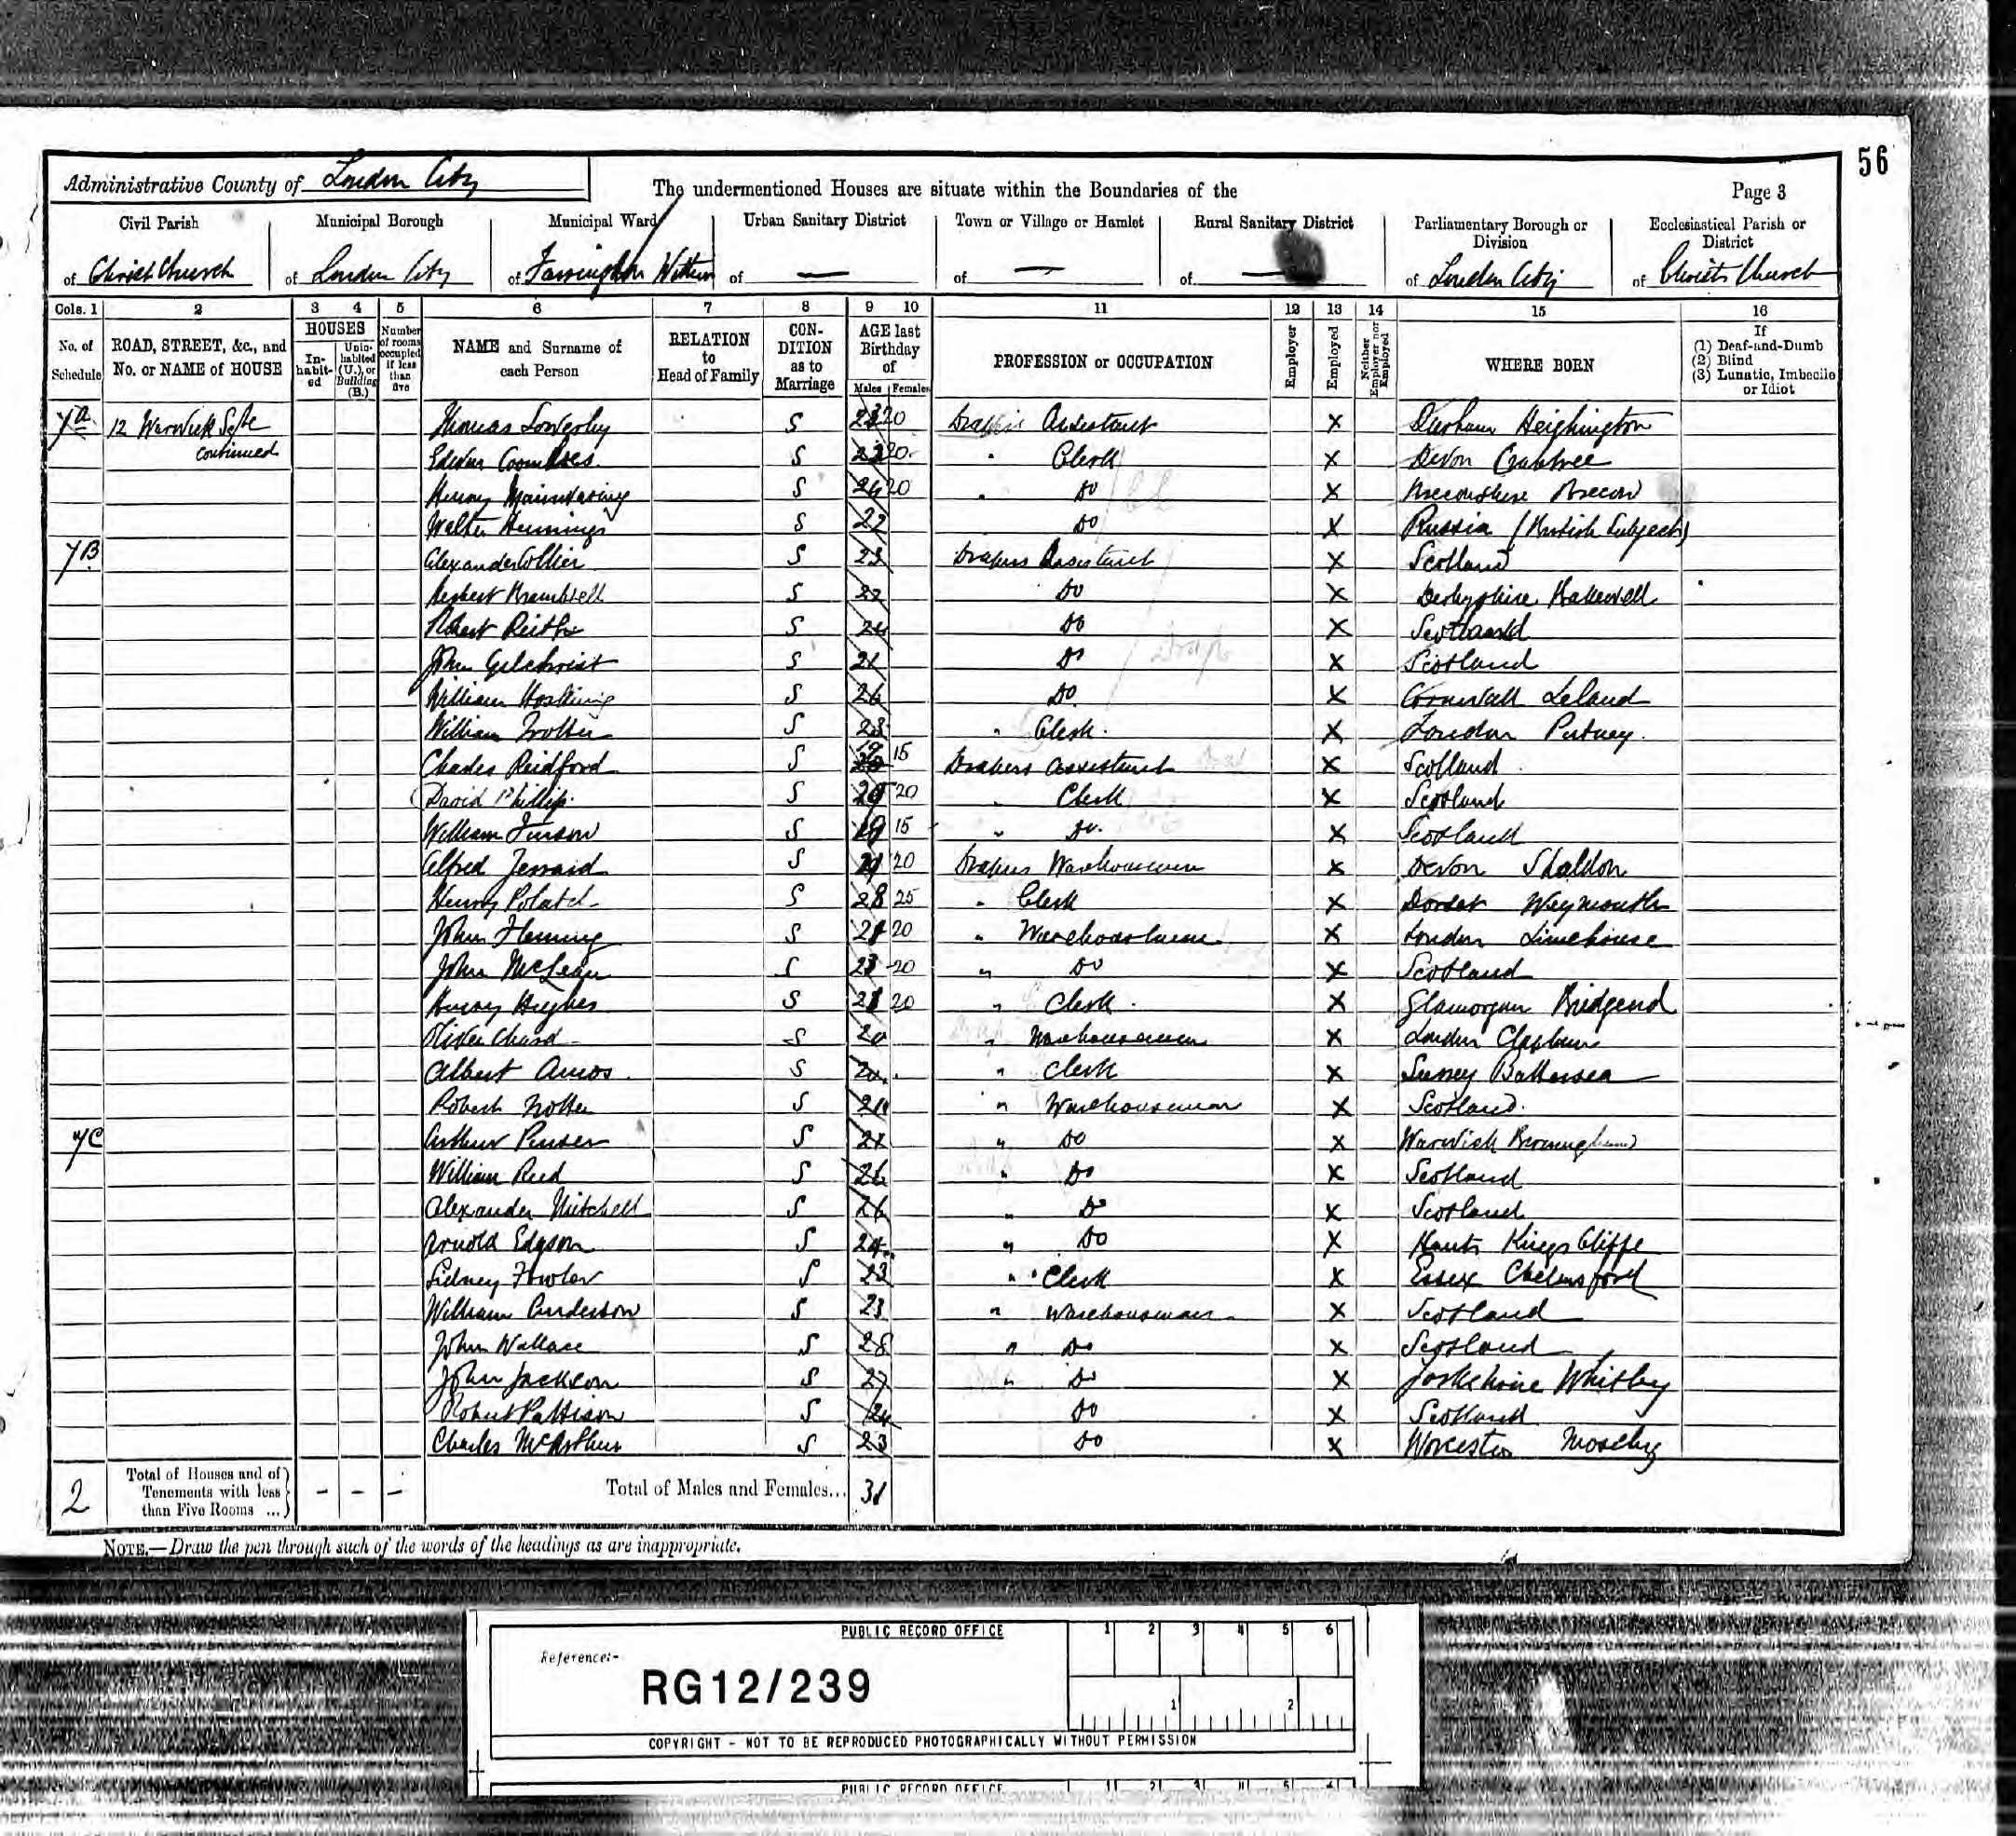 56
Administrative County of London City
The undermentioned Houses are situate within the Boundaries of the
Page 3
Civil Parish
Municipal Borough
Municipal Ward
Urban Sanitary District
Town or Village or Hamlet
Rural Sanitary District
Parliamentary Borough or Division
Ecclesiastical Parish or District
of Christ Church
of London City
of Farringdon Within
of —
of —
of —
of London City
of Christ Church
Cols. 1 2 3 4 5 6 7 8 9 10 11 12 13 14 15 16
No. of Schedule
ROAD, STREET, &c., and No. or NAME of HOUSE
HOUSES
In-habit-ed
Unin-habited (U.), or Building (B.)
Number of rooms occupied if less than five
NAME and Surname of each Person
RELATION to Head of Family
CON-DITION as to Marriage
AGE last Birthday of
Males Females
PROFESSION or OCCUPATION
Employer
Employed
Neither Employer nor Employed
WHERE BORN
If
(1) Deaf-and-Dumb
(2) Blind
(3) Lunatic, Imbecile or Idiot
7A 12 Warwick Thomas Sowerby S 20 Drapers Assistant X Durham Heighington
continued Edwin Coombes S 20 " Clerk X Devon Crabtree
Henry Mainwaring S 24 20 " Do X Breconshire Brecon
Walter Hemmings S 22 Do X Russia (British Subject)
7B Alexander Collier S 23 Drapers Assistant X Scotland
Herbert Brambell S 22 Do X Derbyshire Bakewell
Robert S 24 Do X Scotland
John Gilchrist S 21 Do X Scotland
William Hosking S 26 Do X Cornwall Leland
William Trotter S 23 " Clerk X London Putney
Charles Reidford S 19 15 Drapers Assistant X Scotland
David Phillip S 20 " Clerk X Scotland
William S 19 15 " Do X Scotland
Alfred Jerrard S 20 Drapers Warehouseman X Devon Shaldon
Henry S 28 25 " Clerk X Dorset Weymouth
John Fleming S 21 20 " Warehouseman X London Limehouse
John McLean S 23 20 " Do X Scotland
Henry Hughes S 21 20 " Clerk X Glamorgan Bridgend
Oliver Chard S 20 " Warehouseman X London Clapham
Albert Amos S 20 " Clerk X Surrey Battersea
Robert S 21 " Warehouseman X Scotland
7C Arthur Purser S 21 " Do X Warwick Birmingham
William Reed S 26 " Do X Scotland
Alexander Mitchell S 26 " Do X Scotland
Arnold Edgson S 24 " Do X Hants Kings Cliffe
Sidney Fowler S 23 " Clerk X Essex Chelmsford
William Anderson S 23 " Warehouseman X Scotland
John Wallace S 28 " Do X Scotland
John Jackson S 27 " Do X Yorkshire Whitby
Robert Pattison S 24 Do X Scotland
Charles McArthur S 23 Do X Worcester Moseley
2 Total of Houses and of Tenements with less than Five Rooms ... – – – Total of Males and Females... 31
NOTE.—Draw the pen through such of the words of the headings as are inappropriate.
PUBLIC RECORD OFFICE
1 2 3 4 5 6
Reference:-
RG12/239
1 2
COPYRIGHT - NOT TO BE REPRODUCED PHOTOGRAPHICALLY WITHOUT PERMISSION
PUBLIC RECORD OFFICE